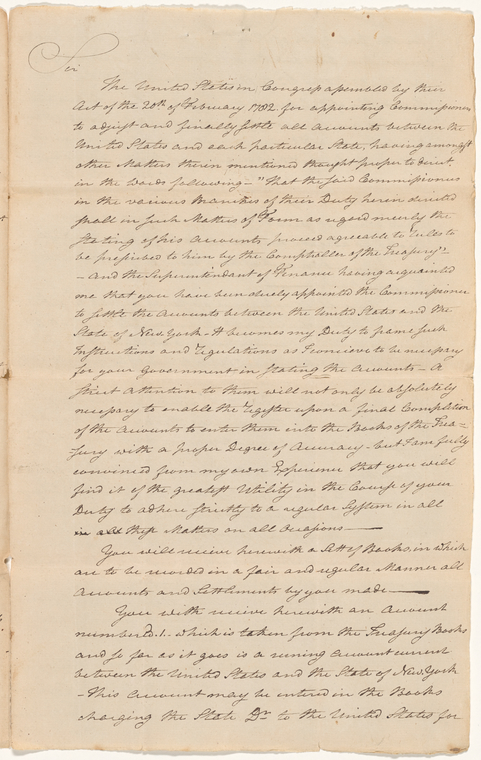 Sir
The United States in Congress assembled by their
Act of the 20th of February 1782 for appointing Commissioners
to adjust and finally settle all Accounts between the
United States and each particular State, having amongst
other Matters therein mentioned thought proper to direct
in the words following – "That the said Commissioners
in the various Branches of their Duty herein directed
shall in such Matters of Form as regard meerly the
Stating of his Accounts proceed agreeable to Rules to
be prescribed to him by the Comptroller of the Treasury"–
– And the Superintendant of Finance having acquainted
me that you have been duely appointed the Commissioner
to settle the Accounts between the United States and the
State of New York – It becomes my Duty to frame such
Instructions and Regulations as I conceive to be necessary
for your Government in Stating the Accounts – A
strict Attention to them will not only be absolutely
necessary to enable the Register upon a final Completion
of the Accounts to enter them into the Books of the Trea=
=sury with a proper Degree of Accuracy – but I am fully
convinced from my own Experience that you will
find it of the greatest Utility in the Course of your
Duty to adhere strictly to a regular System in all
in all these Matters on all Occasions —
You will receive herewith a Sett of Books, in which
are to be recorded in a fair and regular Manner all
Accounts and Settlements by you made —
You with receive herewith an Account
numbered .1. which is taken from the Treasury Books
and so far as it goes is a runing Account current
between the United States and the State of New York
– This Account may be entered in the Books
charging the State Dr to the United States for